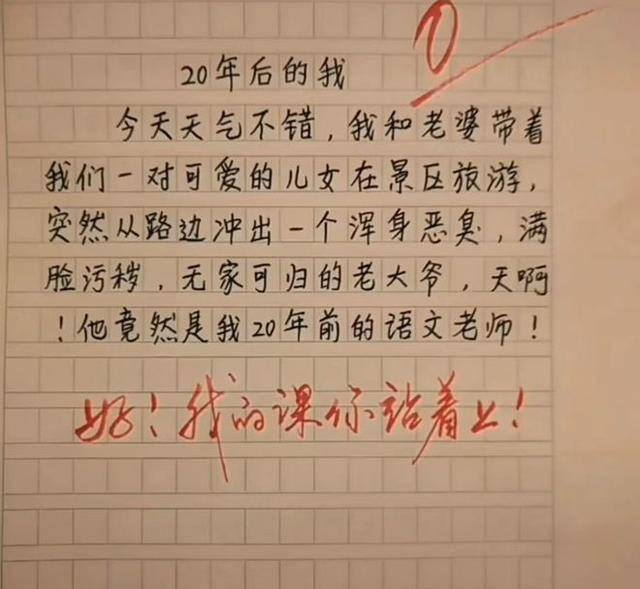 0
20年后的我
今天天气不错，我和老婆带着
我们一对可爱的儿女在景区旅游，
突然从路边冲出一个浑身恶臭，满
脸污秽，无家可归的老大爷，天啊
！他竟然是我20年前的语文老师！
好！我的课你站着上！